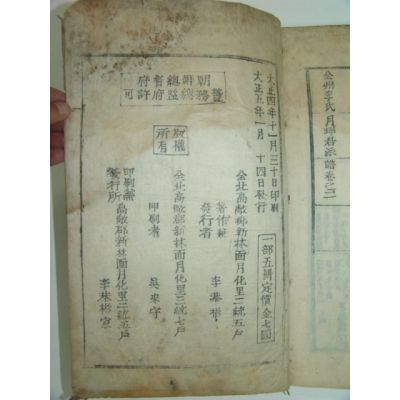 全州李氏月
派譜卷之二
大正四年十一月三十日印刷
大正五年一月 十四日發行
一部五冊定價金七圓
朝鮮總督府
警務總監府許可
版權
所有
全北高敞郡新林面月化里二統五戶
著作兼
發行者 李
全北高敞郡新林面月化里三統七戶
印刷者 吳
印刷兼
發行所 高敞郡新林面月化里二統五戶
李